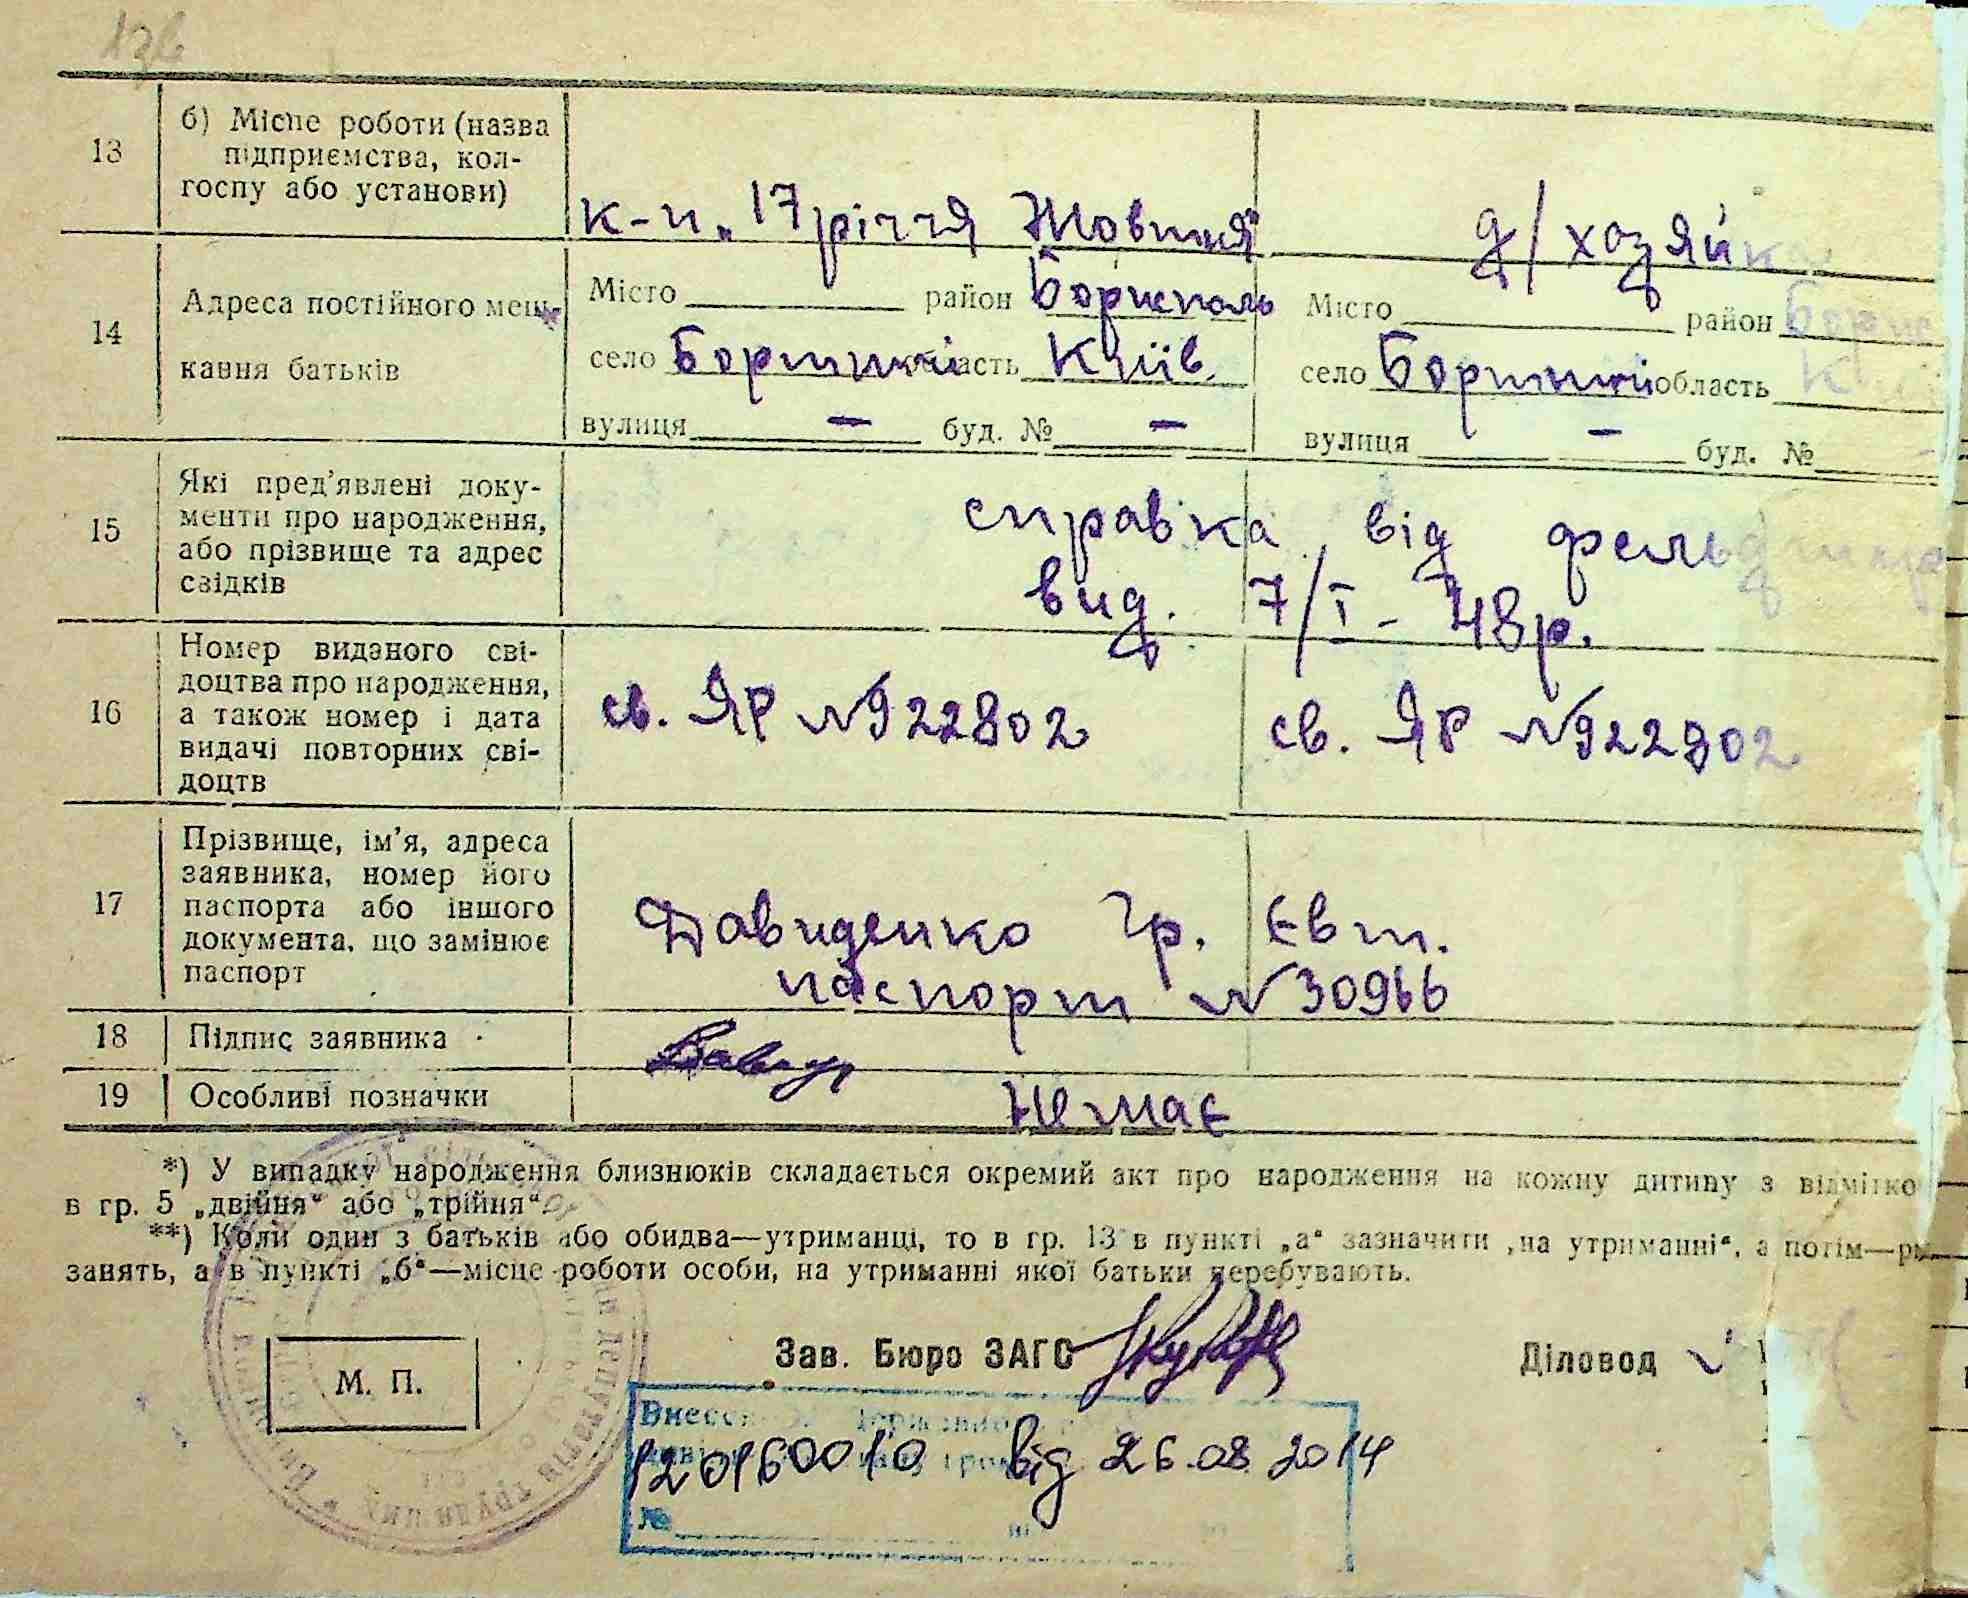 13 б) Місце роботи (назва
підприємства, кол-
госпу або установи)
к-п „17 річчя Жовтня" д/хазяйка
14 Адреса постійного меш-
кання батьків
Місто район Бориспол Місто район Борис
село область Київ. село область К
вулиця — буд. № — вулиця — буд. №
15 Які пред'явлені доку-
менти про народження,
або прізвище та адрес
свідків
справка від фельдшера
вид. 7/I - 48р.
16 Номер виданого сві-
доцтва про народження,
а також номер і дата
видачі повторних сві-
доцтв
св. ЯР №922802 св. ЯР №922802
17 Прізвище, ім'я, адреса
заявника, номер його
паспорта або іншого
документа, що замінює
паспорт
Давиденко Гр. Євт.
паспорт №30966
18 Підпис заявника
19 Особливі позначки Немає
*) У випадку народження близнюків складається окремий акт про народження на кожну дитину з відмітко
в гр. 5 „двійня“ або „трійня“.
**) Коли один з батьків або обидва—утриманці, то в гр. 13 в пункті „а“ зазначити „на утриманні“, а потім—
занять, а в пункті „б“—місце роботи особи, на утриманні якої батьки перебувають.
Зав. Бюро ЗАГС Діловод
М. П.
120160010 від 26.08.2014
№